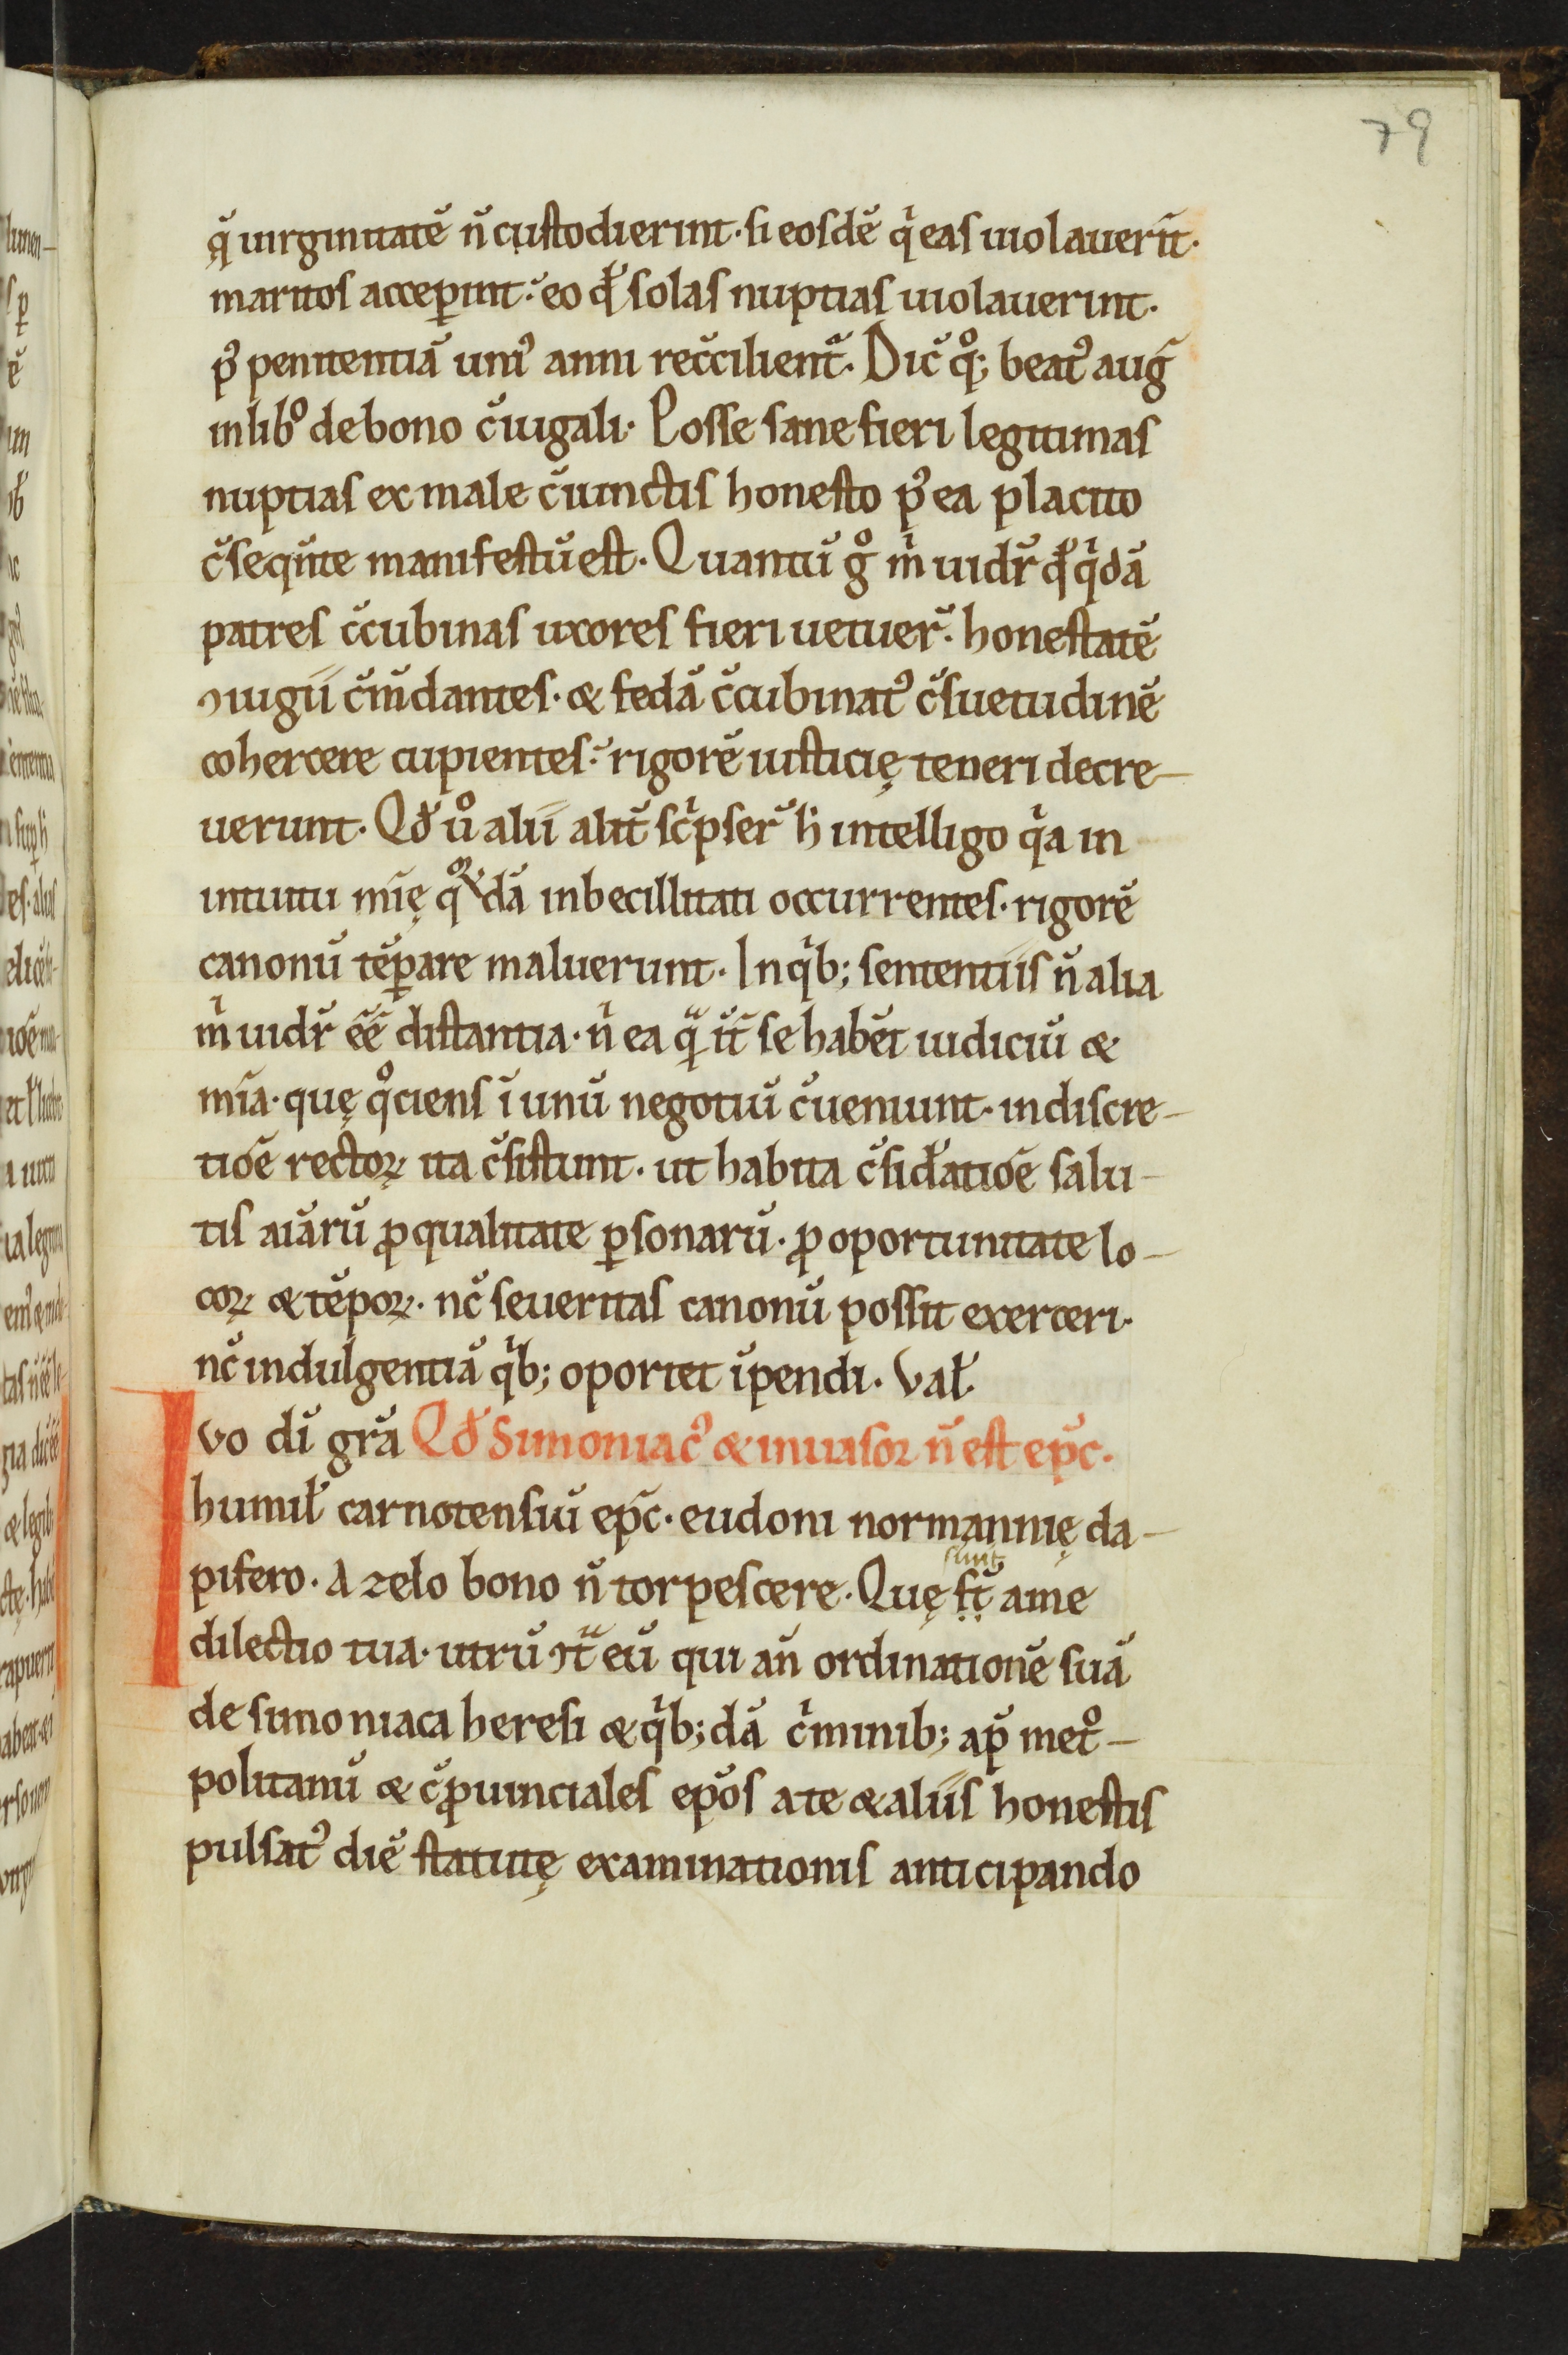 79
q̨̄ uirginitatē n̄ custodierint. si eosdē qͥ eas uiolauerīt.
maritos acceꝑint. eo qđ solas nuptias uiolauerint.
pꝰ penitentiā uniꝰ anni rec̄cilient᷑. Dic̄ qͦꝫ beatꝰ auḡ
in libͦ de bono c̄iugali. Posse sane fieri legitimas
nuptias ex male c̄iunctis honesto pꝰea placito
c̄seqūte manifestū est. Quantū gͦ mͥ uidr̄ qđ qͥdā
patres c̄cubinas uxores fieri uetuer̄. honestatē
ꝯiugii c̄m̄dantes. & fedā c̄cubinatꝰ c̄suetudinē
cohercere cupientes. rigorē iusticię teneri decre-
uerunt. Qđ uͦ alii alit̄ sc̄ͥpser̄ h̄ intelligo qͥa in
intuitu mīę qͦꝝdā inbecillitati occurrentes. rigorē
canonū tēꝑare maluerunt. In qͥbꝫ sententiis n̄ alia
mͥ uidr̄ ēē distantia. nͥ ea q̨ᷓ īt̄ se habēt iudiciū &
mīa. quę qͦciens ī unū negotiū c̄ueniunt. in discre-
tiōe rectoꝝ ita c̄sistunt. ut habita c̄siđatiōe salu-
tis aīarū ꝓ qualitate ꝑsonarū. ꝓ oportunitate lo-
coꝝ & tēpoꝝ. nc̄ seueritas canonū possit exerceri.
nc̄ indulgentiā qͥbꝫ oportet īpendi. Vał.
Ivo dī grā Qđ Simoniacꝰ & inuasor n̄ est ep̄c.
humił carnotensiū ep̄c. eudoni normannię da-
pifero. A zelo bono n̄ torpescere. Quę sīt̄ a me
sunt
dilectio tua. utrū ꝯt̄ᷓ eū qui an̄ ordinationē suā
de simoniaca heresi & qͥbꝫdā cͥminibꝫ ap̄ metͦ-
politanū & c̄ꝓuinciales ep̄os a te & aliis honestis
pulsatꝰ diē statutę examinationis anticipando